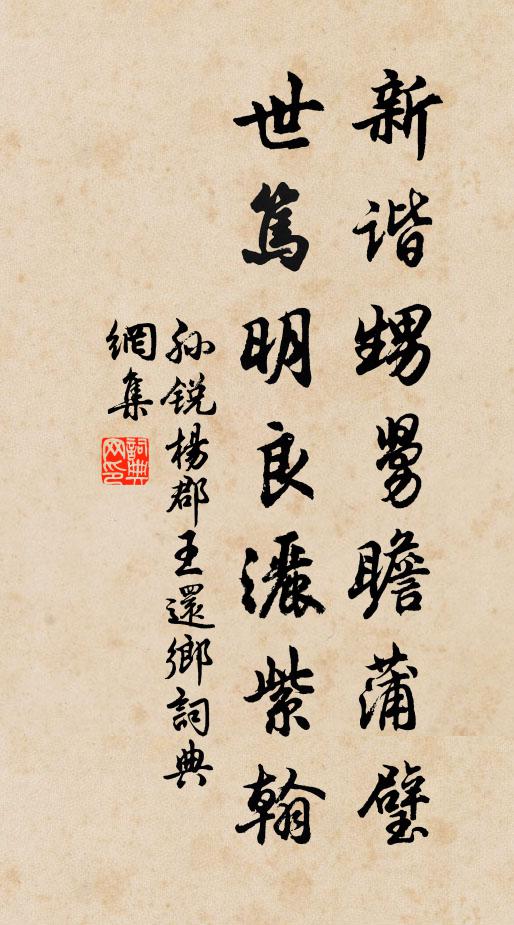 新谐甥舅瞻蒲璧
世篤明良灑紫翰
孙锐楊郡王還鄉詞典
網集
詞典网印